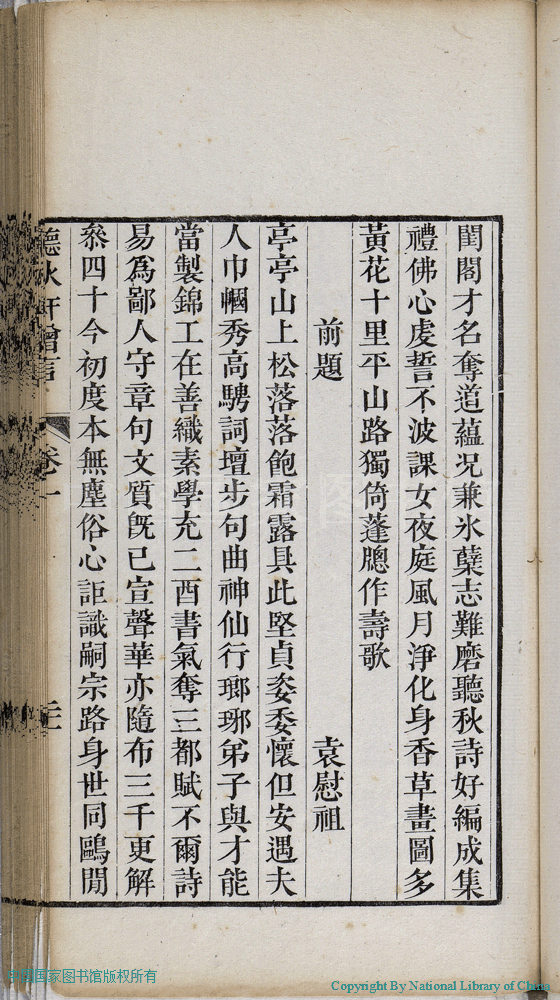 閨閣才名奪道蘊况兼氷蘗志難磨聽秋詩好編成集
禮佛心虔誓不波課女夜庭風月淨化身香草畫圖多
黃花十里平山路獨倚蓬牕作壽歌
前題 袁慰祖
亭亭山上松落落飽霜露具此堅貞姿委懷但安遇夫
人巾幗秀高騁詞壇步句曲神仙行瑯琊弟子與才能
當製錦工在善織素學充二酉書氣奪三都賦不爾詩
易爲鄙人守章句文質旣已宣聲華亦隨布三千更解
叅四十今初度本無塵俗心詎識嗣宗路身世同鷗閒
聽秋軒贈言 卷一
中国国家图书馆版权所有
Copyright By National Library of China